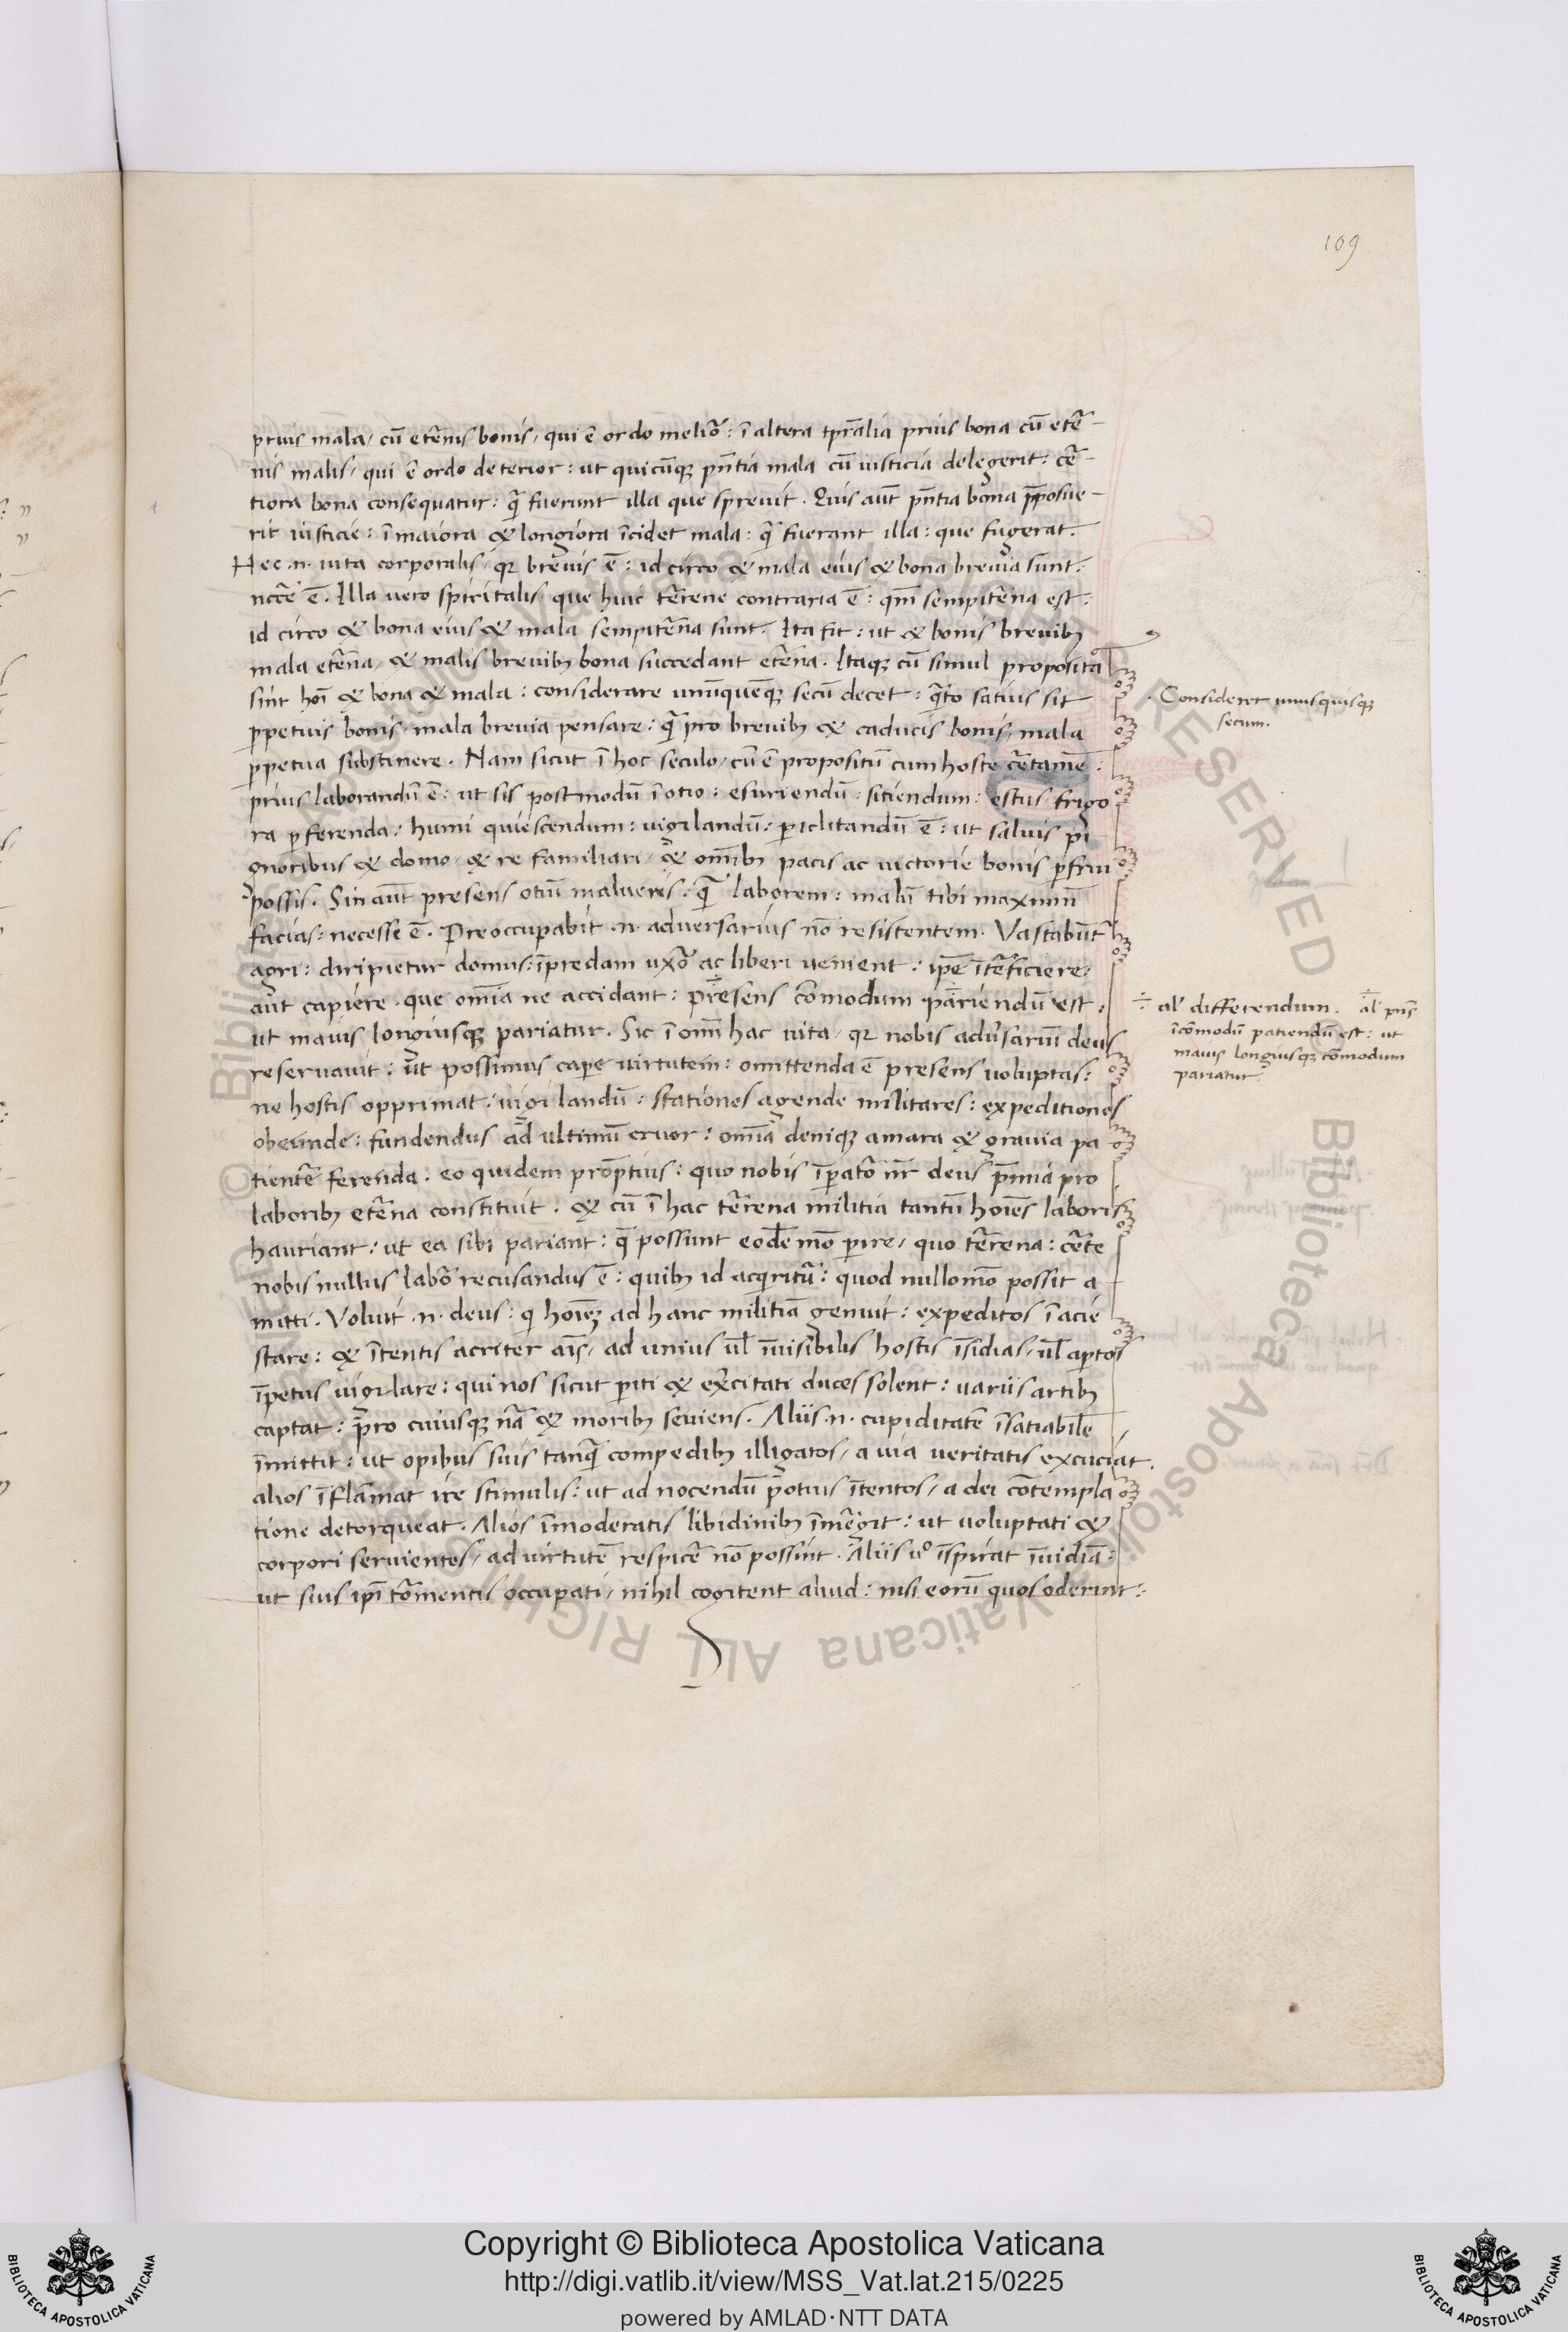 109
prius mala, cũ etẽnis bonis, qui ẽ ordo meliõ: ĩ altera tp̃ralia prius bona cũ etẽ-
nis malis, qui ẽ ordo deterior: ut quicũq; pñtia mala cũ iusticia delegerit: cẽ-
tiora bona consequatur: q̃ fuerunt illa que sprevit. Quis aũt pñtia bona p̃posue-
rit iusticie: ĩ maiora & longiora ĩcidet mala: q̃ fuerant illa: que fugerat.
Hec .n. vita corporalis, qz brevis ẽ: id circo & mala eius & bona brevia sunt:
nccẽ ẽ. Illa vero spiritalis, que huic tẽrene contraria ẽ: qm̃ sempitẽna est:
id circo & bona eius & mala sempitẽna sunt. Ita fit: ut & bonis brevib;
mala etẽna, & malis brevib; bona succedant etẽna. Itaq; cũ simul proposita
sint hoĩ & bona & mala: considerare unũquẽq; secũ decet: q̃to satius sit
ppetuis bonis, mala brevia pensare: q̃ pro brevib; & caducis bonis, mala
ppetua substinere. Nam sicut ĩ hoc seculo, cũ ẽ propositũ cum hoste cẽtamẽ:
prius laborandũ ẽ: ut sis postmodũ ĩ otio: esuriendũ: sitiendum: estus, frigo
ra pferenda: humi quiescendum: vigilandũ: piclitandũ ẽ: ut salvis pi
gnoribus & domo, & re familiari, & omĩb; pacis ac victorie bonis pfrui
possis. Sin aũt presens otiũ malueris: q̃ laborem: malũ tibi maximũ
facias: necesse ẽ. Preoccupabit .n. adversarius nõ resistentem. Vastabũt̃
agri: diripietur domus: ĩ predam uxõ ac liberi venient: ip̃e ĩtẽficiere:
aũt capiere. que om̃ia ne accidant: presens cõmodum pariendũ est:
ut maius longiusq; pariatur. Sic ĩ omĩ hac vita, qz nobis adṽsariũ deus
reservavit: ut possimus cape virtutem: omittenda ẽ presens voluptas:
ne hostis opprimat: vigilandũ: stationes agende militares: expeditiones
obeunde: fundendus ad ultimũ cruor: omĩa deniq; amara & gravia pa
tientẽ ferenda. eo quidem prõptius: quo nobis ĩpatõ nr̃ deus p̃mia pro
laborib; etẽna constituit: & cũ ĩ hac tẽrena militia tantũ hoĩes laboris
hauriant: ut ea sibi pariant: q̃ possunt eodẽ mõ pire, quo tẽrena: cẽte
nobis nullus labõ recusandus ẽ: quib; id acqiritũ: quod nullomõ possit a
mitti. Voluit .n. deus: qi hoĩez ad hanc militiã genuit: expeditos ĩ acie
stare: & ĩtentis acriter aĩs, ad unius ul̃ ĩvisibilis hostis ĩsidias, ul̃ aptos
ĩpetus vigilare: qui nos sicut piti & exẽcitati duces solent: variis artib;
captat: pro cuiusq; nã & morib; seviens. Aliis .n. cupiditatẽ ĩsatiabilẽ
ĩmittit: ut opibus suis tanq̃ compedib; illigatos, a via veritatis excuciat.
alios ĩflãmat ire stimulis: ut ad nocendũ potius ĩtentos, a dei cõtempla
tione detorqueat. Alios ĩmoderatis libidinib; ĩmẽgit: ut voluptati &
corpori servientes, ad virtutẽ respicẽ nõ possint. Aliis ṽo ĩspirat ĩvidiã:
ut suis ip̃i tõmentis occupati, nihil cogitent aliud: nisi eorũ quos oderint:
. Consideret unusquisq;
secum.
÷ al' differendum. al' pñs
ĩcõmodũ patiendũ est: ut
maius longiusq; cõmodum
pariatur.
© Biblioteca Apostolica Vaticana ALL RIGHTS RESERVED
Copyright © Biblioteca Apostolica Vaticana
http://digi.vatlib.it/view/MSS_Vat.lat.215/0225
powered by AMLAD·NTT DATA
BIBLIOTECA APOSTOLICA VATICANA
BIBLIOTECA APOSTOLICA VATICANA